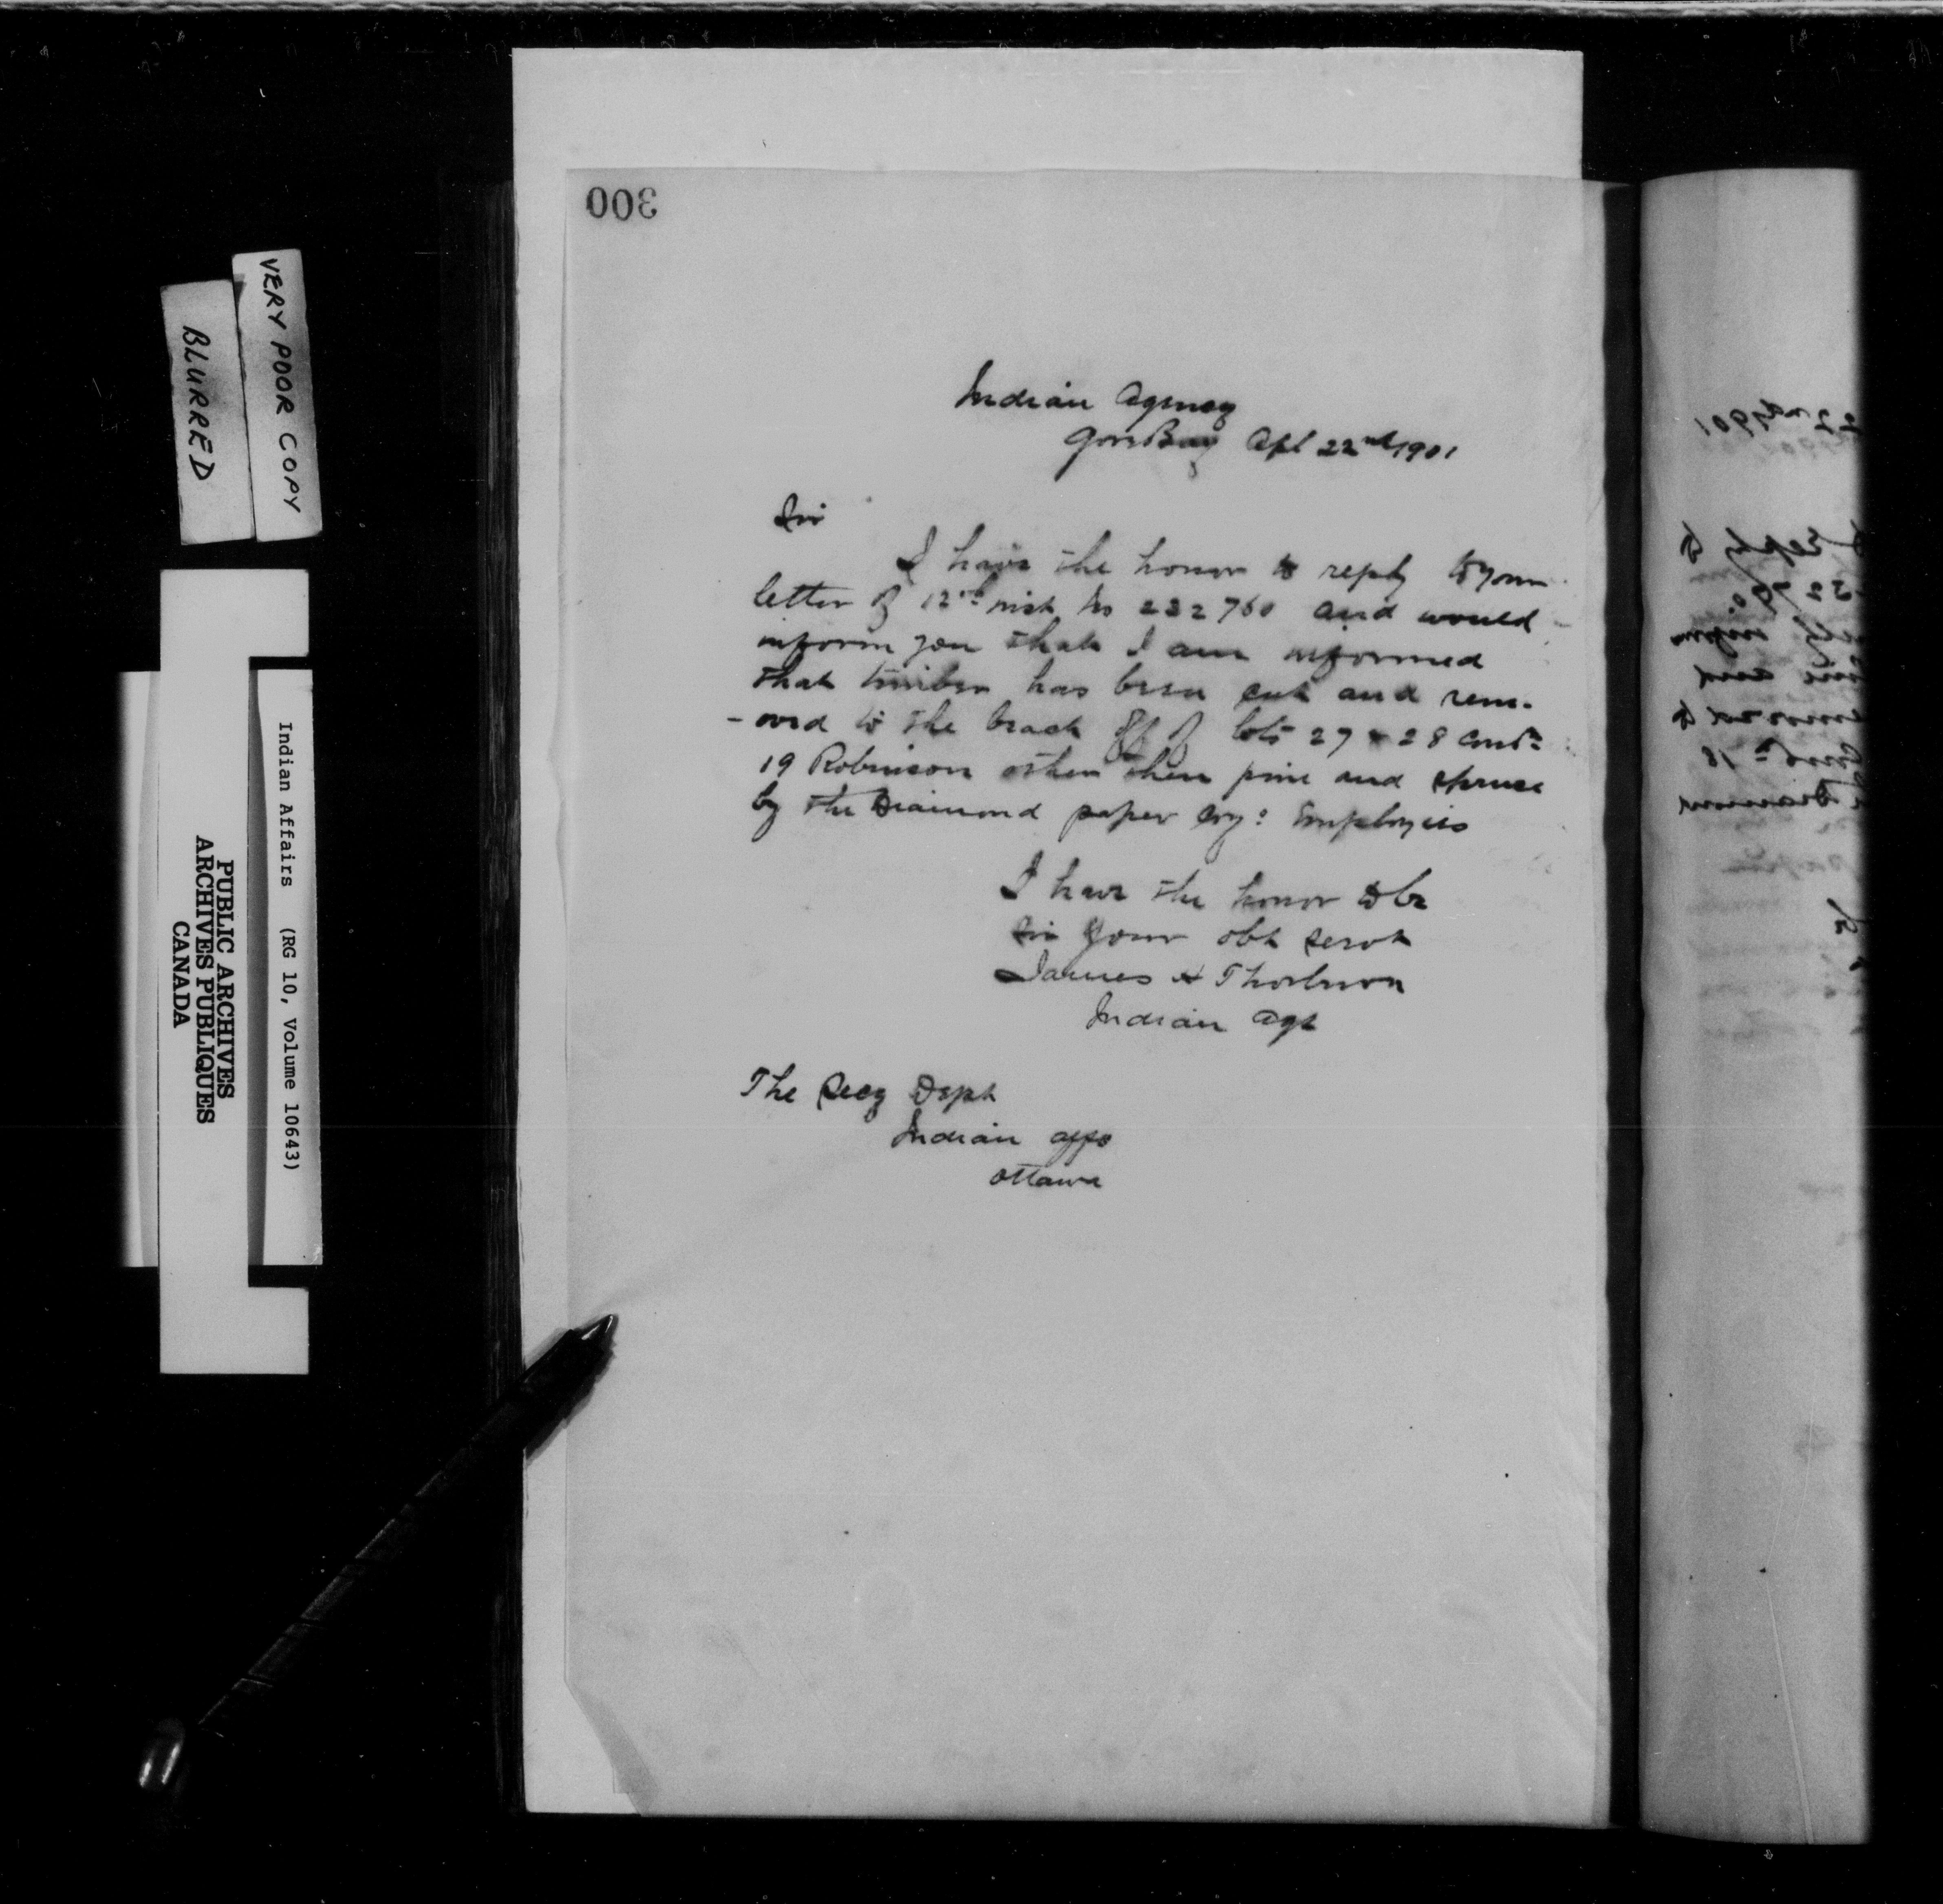 300
Indian Agency
Gore Bay Apl 22nd 1901
Sir
I have the honor to reply to your
letter of 12th inst No 222760 and would
inform you that I am informed
that timber has been cut and rem-
-oved to the beach off of lots 27 & 28 Con
19 Robinson other then pine and spruce
by the Diamond paper Coy: Employees
I have the honor to be
Sir Your obt servt
James H Thorburn
Indian Agt
The Secy Dept
Indian affs
Ottawa
VERY POOR COPY
BLURRED
Indian Affairs (RG 10, Volume 10643)
PUBLIC ARCHIVES
ARCHIVES PUBLIQUES
CANADA